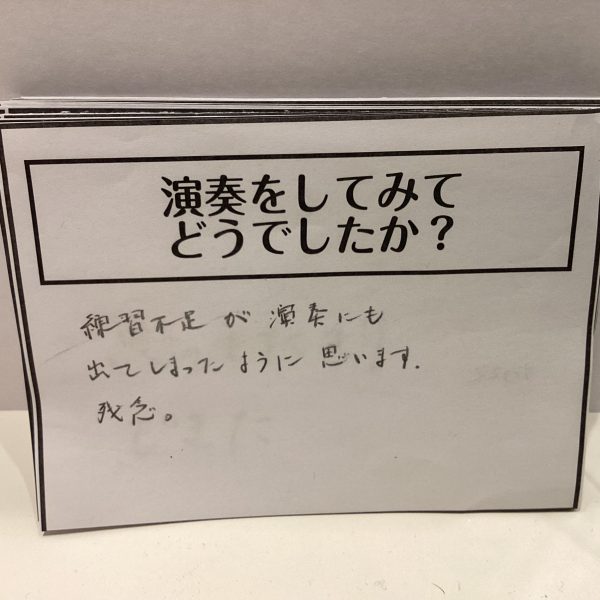 演奏をしてみて
どうでしたか？
練習不足が演奏にも
出てしまったように思います.
残念。